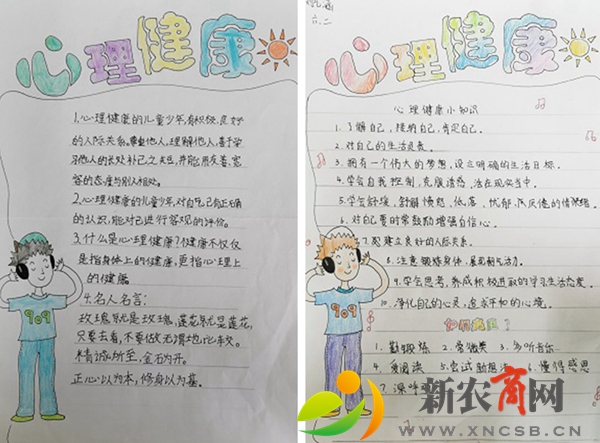 心理健康
1.心理健康的儿童少年,有积极,良好
的人际关系。尊重他人,理解他人,善于学
习他人的长处补己之失当,并能用友善,宽
容的态度与别人相处。
2.心理健康的儿童少年,对自己有正确
的认识,能对己进行客观的评价。
3.什么是心理健康?健康不仅仅
是指身体上的健康,更指心理上
的健康
4.名人名言:
玫瑰就是玫瑰,莲花就是莲花,
只要去看,不要做无谓地比较。
精诚所至,金石为开。
正心以为本,修身以为基。
909
六.二
心理健康
心理健康小知识
1.了解自己,接纳自己,肯定自己。
2.对自己的生活负责。
3.拥有一个伟大的梦想,设立明确的生活目标。
4.学会自我控制,克服诱惑,活在现实当中。
5.学会舒缓,舒解愤怒,低落,忧郁
6.对自己要时常鼓励增强自信心。
7.建立良好的人际关系。
8.注意锻炼身体
9.学会思考,养成积极进取的学习生活态度。
10.净化自己的心灵,追求平和的心境。
1.勤锻炼 2.常微笑 3.多听音乐
4.爱阅读 5.尝试新想法 6.懂得感恩
7.深呼
909
新农商网
WWW.XNCSW.COM.CN